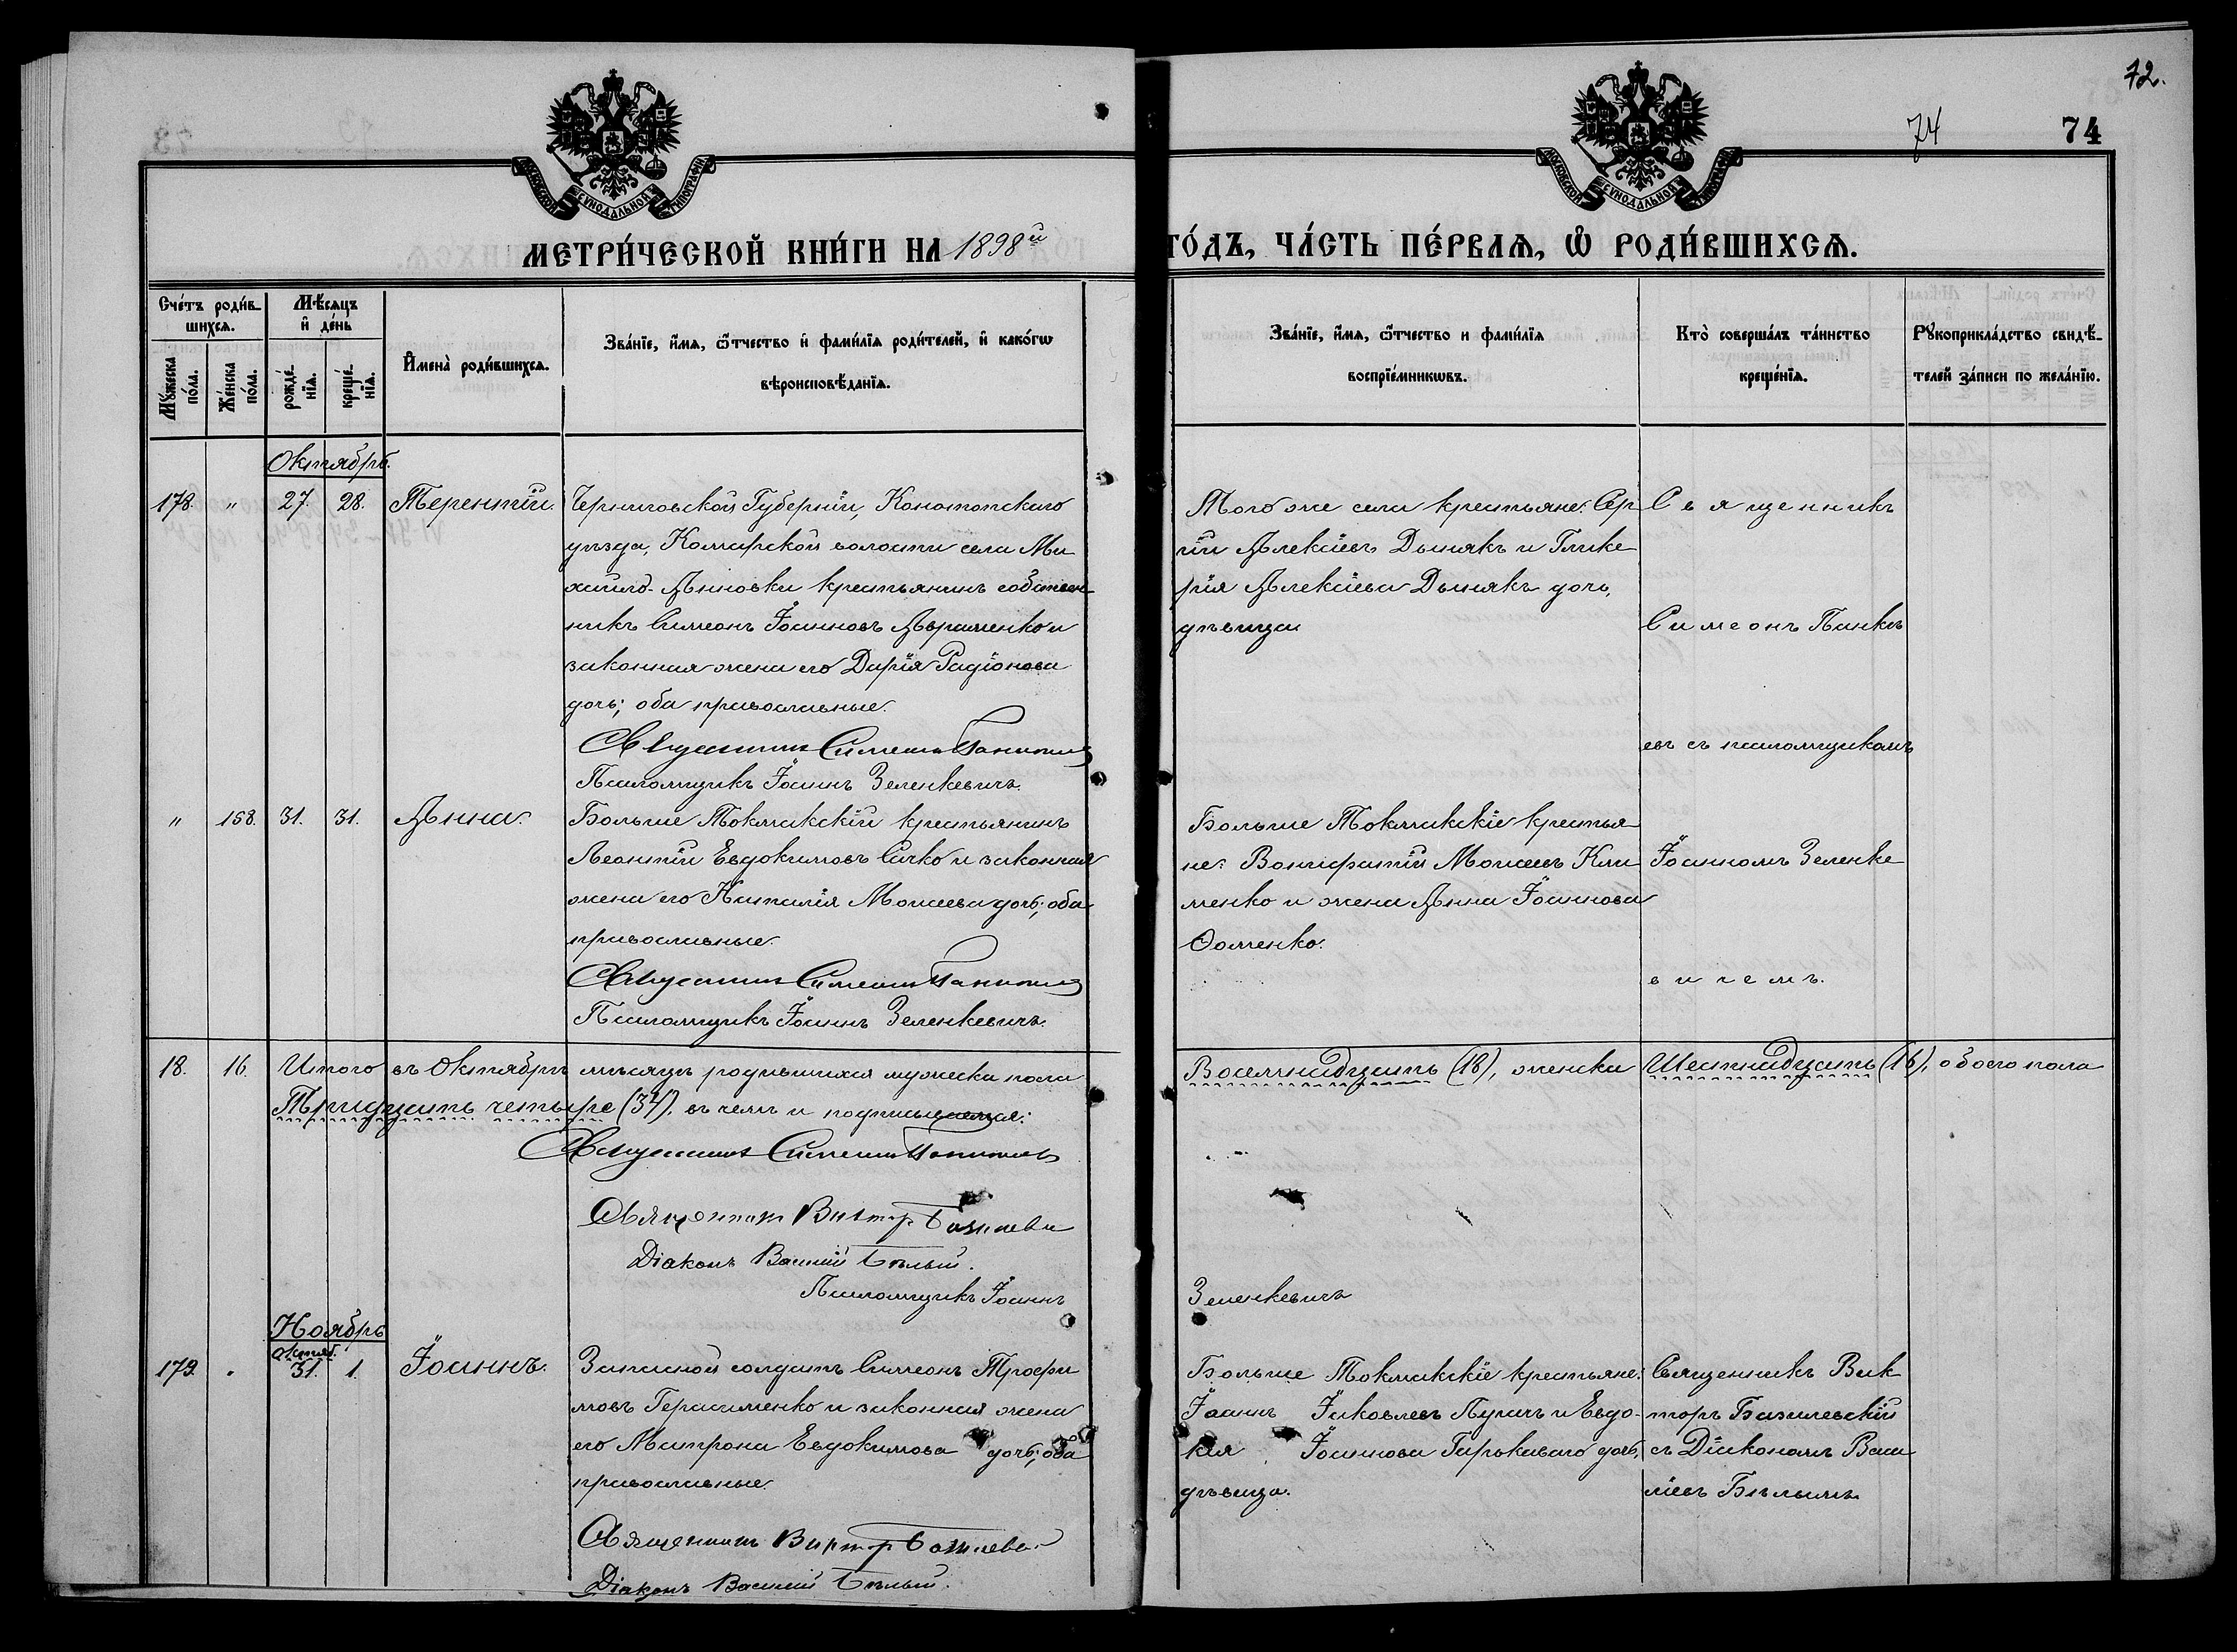 72.
74
74
МОСКОВСКОЙ СѴНОДАЛЬНОЙ ТИПОГРАФІИ
МОСКОВСКОЙ СѴНОДАЛЬНОЙ ТИПОГРАФІИ
МЕТРИ́ЧЕСКОЙ КНИ́ГИ НА 1898й
ГО́ДЪ, ЧА́СТЬ ПЕ́РВАѦ, Ѡ РОДИ́ВШИХСѦ.
Сче́тъ роди́в-
шихся.
Му́жеска
по́ла.
Же́нска
по́ла.
Мѣ́сяцъ
и де́нь
рожде́-
нїя.
креще́-
нїя.
Имена̀ роди́вшихся.
Зва́нїе, и́мя, ѻ́тчество и фами́лїя роди́телей, и како́гѡ
вѣроисповѣ́данїя.
Зва́нїе, и́мя, ѻ́тчество и фами́лїя
воспрїе́мникѡвъ.
Кто̀ соверша́лъ та́инство
креще́нїя.
Рꙋкоприкла́дство свидѣ́-
телей за́писи по жела́нїю.
Октябрь.
178. " 27. 28. Терентій. Черниговской Губерніи, Конотопскаго
уѣзда, Комарской волости села Ми
хайло-Анновки крестьянинъ собствен-
никъ Симеонъ Іоанновъ Авраменко и
законная жена его Дарія Радіонова
дочь; оба православные.
Священникъ Симеонъ Панкѣевъ
Псаломщикъ Іоаннъ Зеленкевичъ.
Того же села крестьяне: Сер
гій Алексіевъ Дынякъ и Глике
рія Алексіева Дынякъ дочь,
дѣвица
Священникъ
Симеонъ Панкѣ
евъ съ псаломщикомъ
" 158. 31. 31. Анна. Больше Токмакскій крестьянинъ
Леонтій Евдокимовъ Сичко и законная
жена его Наталія Моисеева дочь; оба
православные.
Священникъ Симеонъ Панкѣевъ
Псаломщикъ Іоаннъ Зеленкевичъ.
Больше Токмакскіе крестья
не: Вонифатій Моисеевъ Кли
менко и жена Анна Іоаннова
Ѳоменко.
Іоанномъ Зеленке
вичемъ.
18. 16. Итого въ Октябрѣ мѣсяцѣ родившихся мужеска пола
Восемнадцать (18), женска Шестнадцать (16), обоего пола
Тридцать четыре (34), въ чемъ и подписуемся:
Священникъ Симеонъ Панкѣевъ
Священникъ Викторъ Базилевск
Діаконъ Василій Бѣлый.
Псаломщикъ Іоаннъ
Зеленкевичъ
Ноябрь
Октяб.
179. " 31. 1. Іоаннъ. Запасной солдатъ Симеонъ Трофи
мовъ Герасименко и законная жена
его Матрона Евдокимова дочь; оба
православные.
Священникъ Викторъ Базилевс
Діаконъ Василій Бѣлый.
Больше Токмакскіе крестьяне:
Іоаннъ Іаковлевъ Лугичъ и Евдо-
кія Іоаннова Гарькаваго дочь,
дѣвица.
Священникъ Вик
торъ Базилевскій
съ Діакономъ Васи
ліемъ Бѣлымъ.